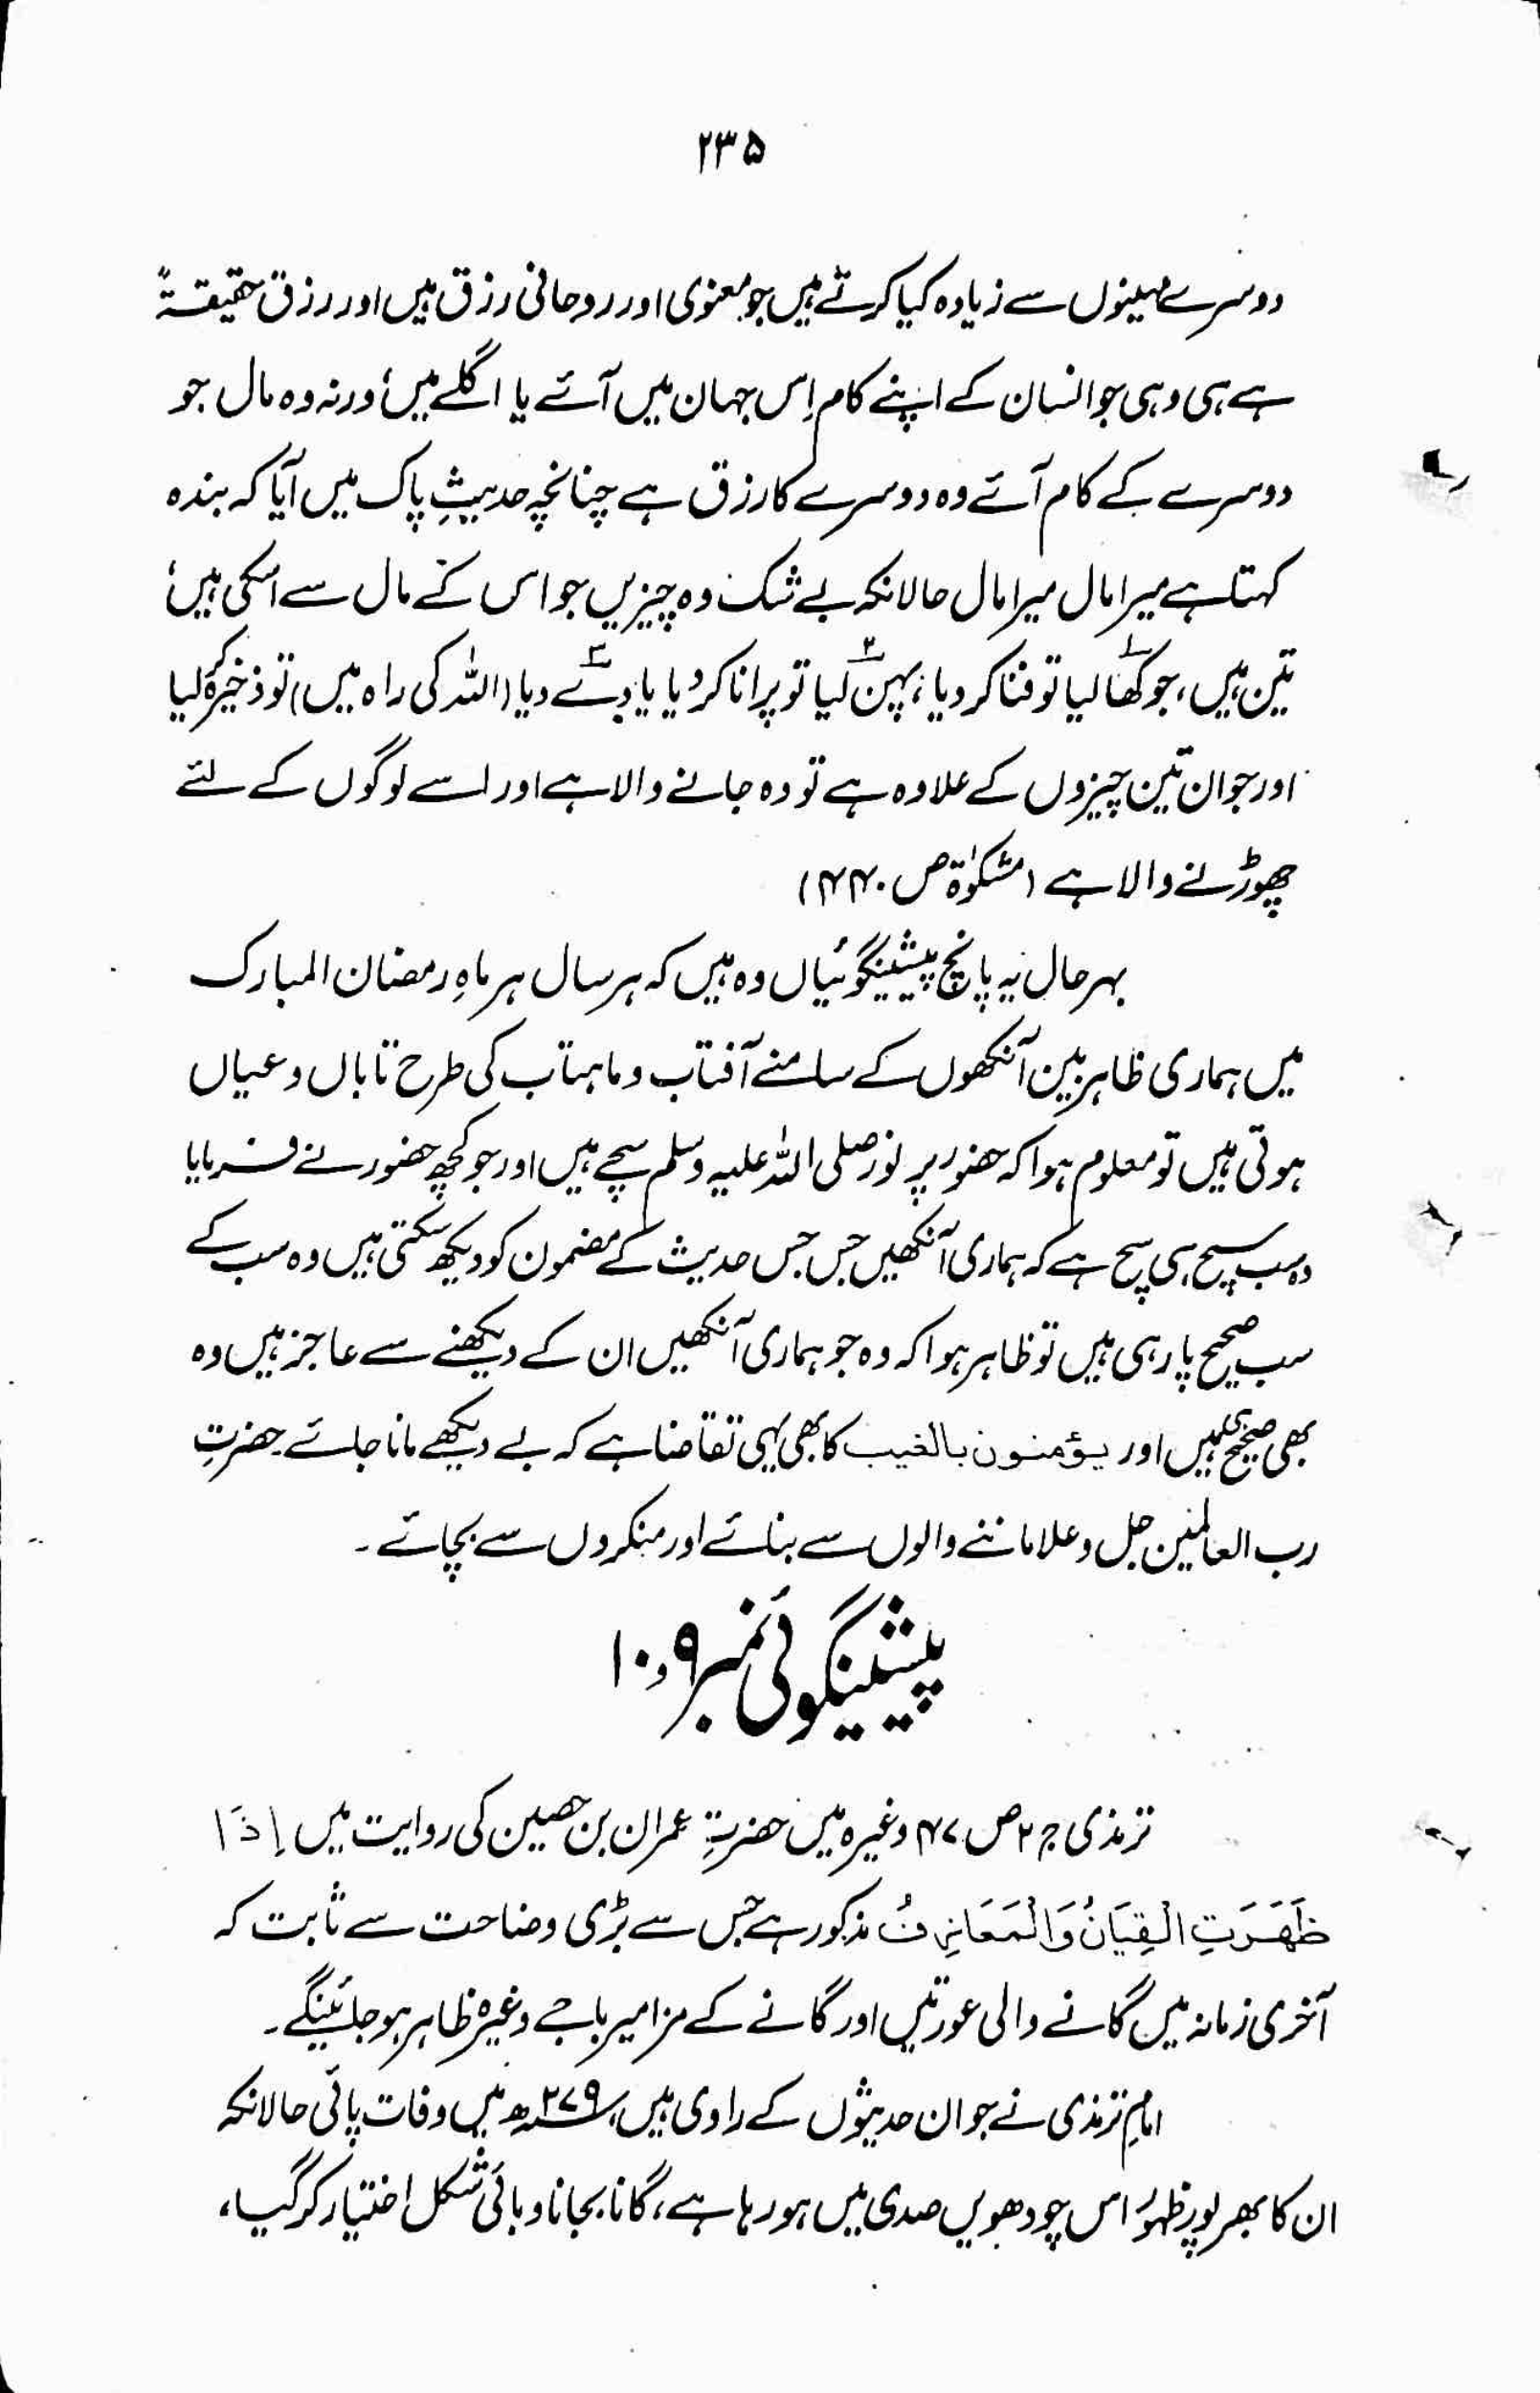 ۲۳۵
دوسرے مہینوں سے زیادہ کیا کرتے ہیں جو معنوی اور روحانی رزق ہیں اور رزق حقیقۃً
ہے ہی وہی جو انسان کے اپنے کام اِس جہان میں آئے یا اگلے میں، ورنہ وہ مال جو
دوسرے کے کام آئے وہ دوسرے کا رزق ہے چنانچہ حدیثِ پاک میں آیا کہ بندہ
کہتا ہے میرا مال میرا مال حالانکہ بے شک وہ چیزیں جو اس کے مال سے اسکی ہیں،
تین ہیں، جو کھا۱ لیا تو فنا کر دیا، پہن۲ لیا تو پرانا کر دیا یا دے۳ دیا (اللہ کی راہ میں) تو ذخیرہ کر لیا
اور جو ان تین چیزوں کے علاوہ ہے تو وہ جانے والا ہے اور اسے لوگوں کے لئے
چھوڑنے والا ہے (مشکوٰۃ ص ۴۴۰)
بہرحال یہ پانچ پیشینگوئیاں وہ ہیں کہ ہر سال ہر ماہِ رمضان المبارک
میں ہماری ظاہر بین آنکھوں کے سامنے آفتاب و ماہتاب کی طرح تاباں و عیاں
ہوتی ہیں تو معلوم ہوا کہ حضور پر نور صلی اللہ علیہ وسلم سچے ہیں اور جو کچھ حضور نے فرمایا
وہ سب سچ ہی سچ ہے کہ ہماری آنکھیں جس جس حدیث کے مضمون کو دیکھ سکتی ہیں وہ سب کے
سب صحیح پا رہی ہیں تو ظاہر ہوا کہ وہ جو ہماری آنکھیں ان کے دیکھنے سے عاجز ہیں وہ
بھی صحیح ہی ہیں اور یؤمنون بالغیب کا بھی یہی تقاضا ہے کہ بے دیکھے مانا جائے۔ حضرتِ
رب العالمین جل و علا ماننے والوں سے بنائے اور منکروں سے بچائے۔
پیشینگوئی نمبر ۹ و ۱۰
ترمذی ج ۲ ص ۴۷ وغیرہ میں حضرتِ عمران بن حصین کی روایت میں اِذَا
ظَهَرَتِ الْقِیَانُ وَالْمَعَازِفُ مذکور ہے جس سے بڑی وضاحت سے ثابت کہ
آخری زمانہ میں گانے والی عورتیں اور گانے کے مزامیر باجے وغیرہ ظاہر ہو جائینگے۔
امام ترمذی نے جو ان حدیثوں کے راوی ہیں، ۲۷۹ھ میں وفات پائی حالانکہ
ان کا بھر پور ظہور اس چودھویں صدی میں ہو رہا ہے، گانا بجانا وبائی شکل اختیار کر گیا،